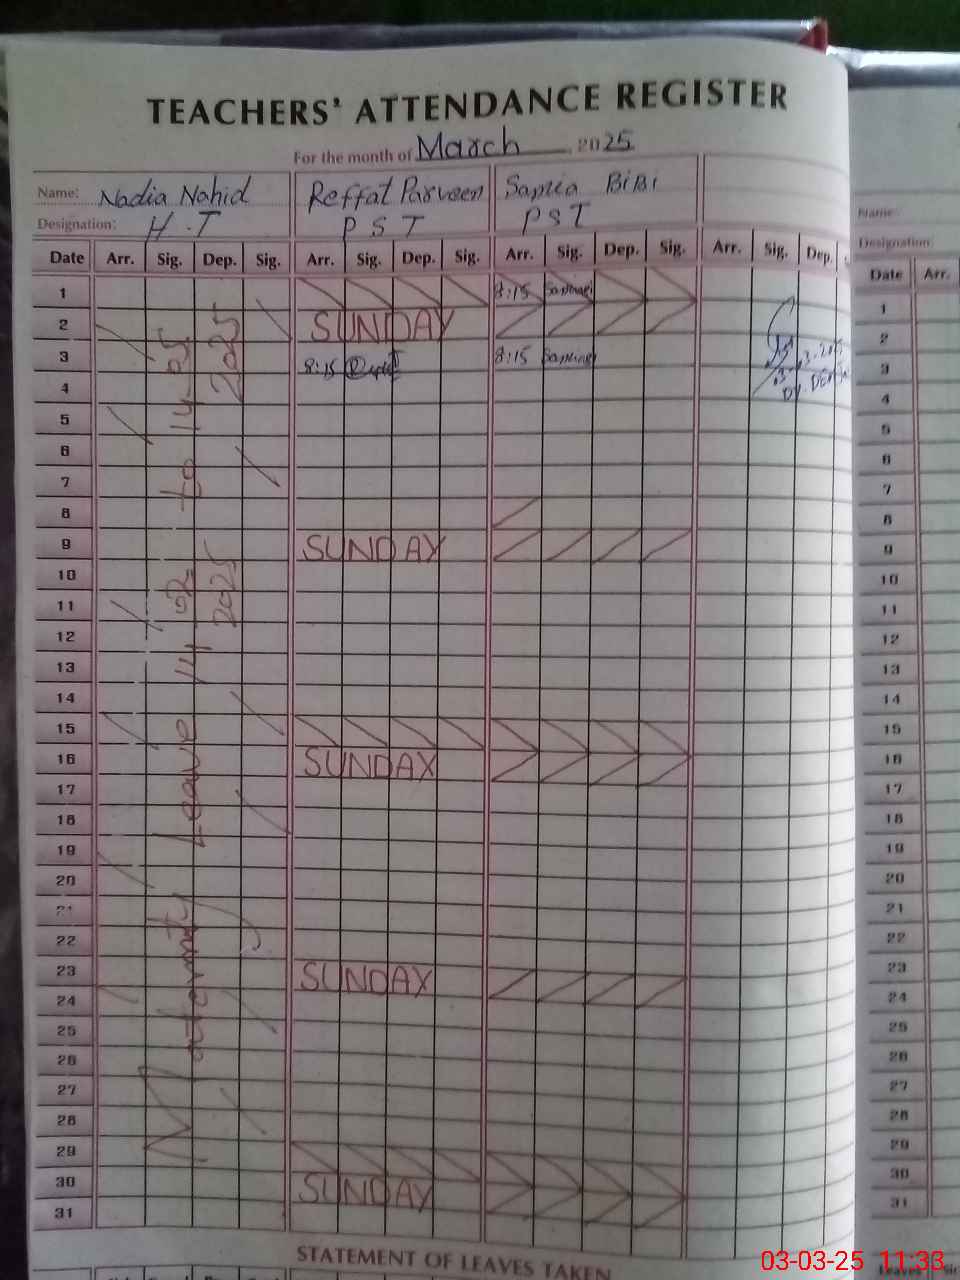 TEACHERS' ATTENDANCE REGISTER
For the month of March 2025
Name: Nadia Nahid Reffat Parveen Samia BiBi
Designation: H.T P S T PST
Name:
Designation:
Date Arr. Sig. Dep. Sig. Arr. Sig. Dep. Sig. Arr. Sig. Dep. Sig. Arr. Sig. Dep.
Date Arr.
1 8:15
2 SUNDAY
3 8:15 8:15
4
5
6
7
8
9 SUNDAY
10
11
12
13
14
15
16 SUNDAY
17
18
19
20
21
22
23 SUNDAY
24
25
26
27
28
29
30 SUNDAY
31
Maternity Leave 14-02-2025 to 14-05-2025
1
2
3
4
5
6
7
8
9
10
11
12
13
14
15
16
17
18
19
20
21
22
23
24
25
26
27
28
29
30
31
STATEMENT OF LEAVES TAKEN
Leaves
03-03-25 11:33